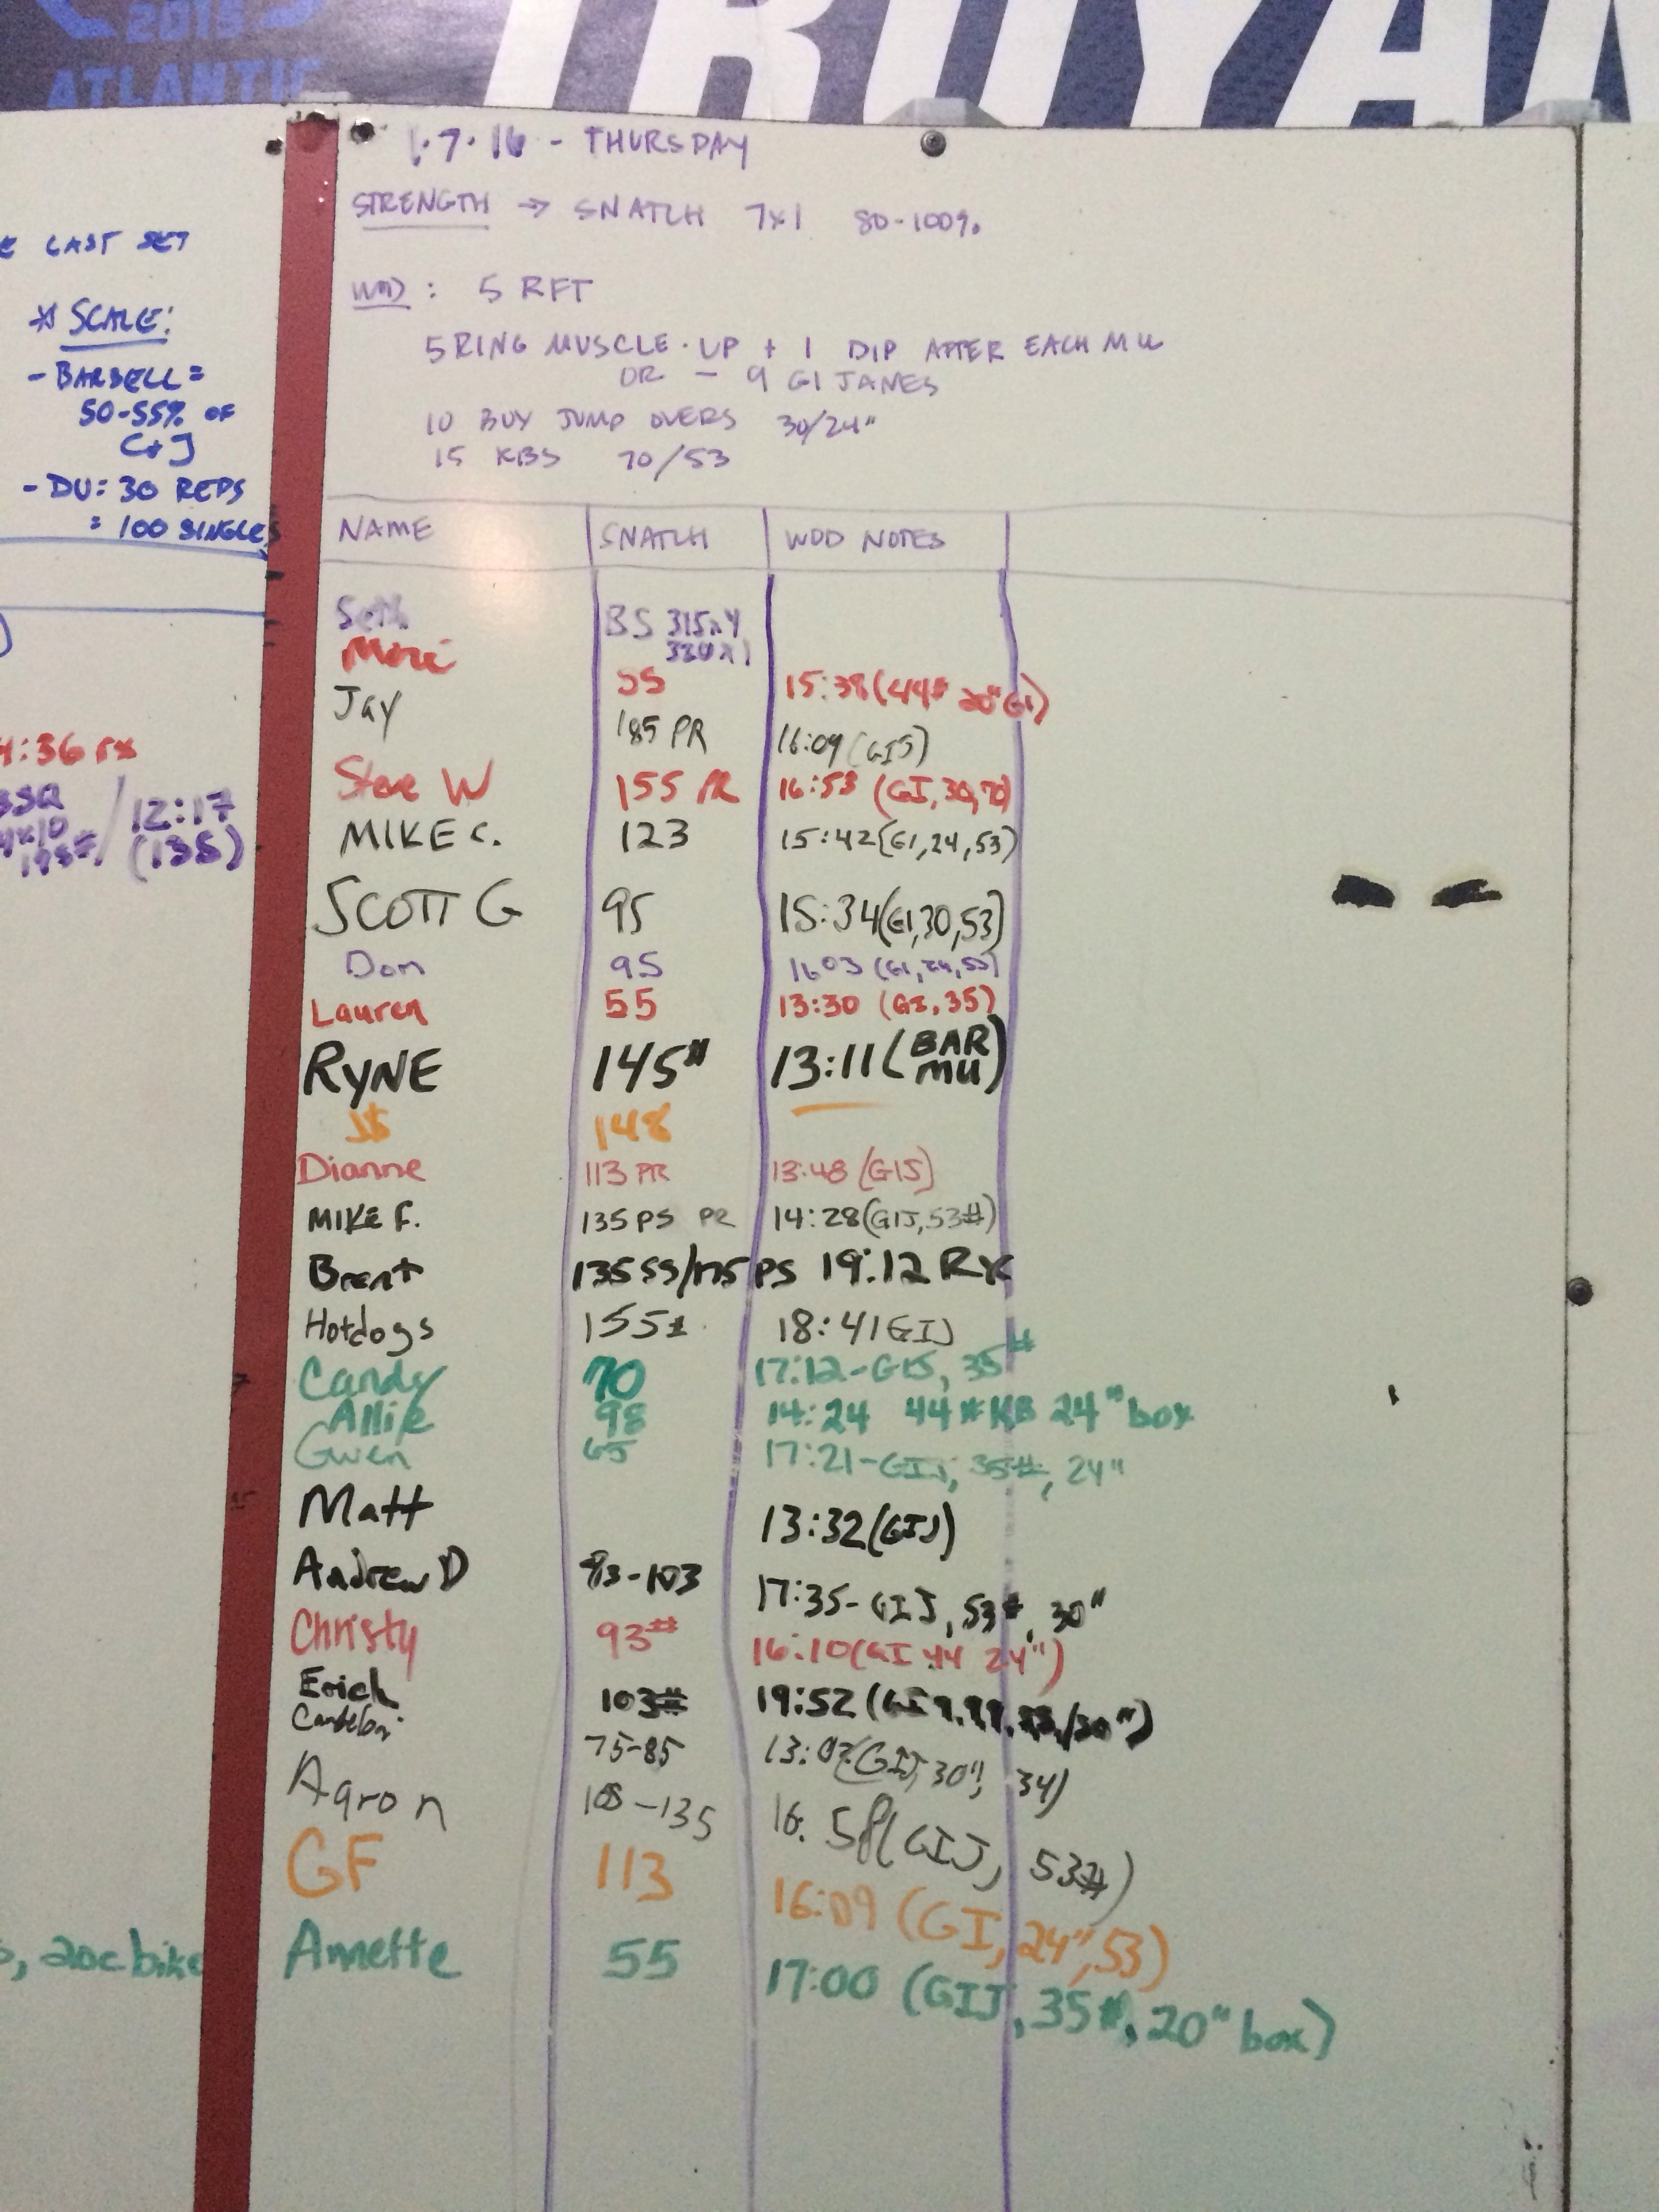 2015
ATLANTIC
TROYAN
1.7.16 - THURSDAY
STRENGTH → SNATCH 7x1 80-100%
WOD: 5 RFT
5 RING MUSCLE-UP + 1 DIP AFTER EACH MU
OR - 9 GI JANES
10 BOX JUMP OVERS 30/24"
15 KBS 70/53
NAME SNATCH WOD NOTES
Seth BS 315x4
55 15:38 (44# 20" GI)
Jay 185 PR 16:09 (GIJ)
Steve W 155 PR 16:53 (GI, 30, 70)
MIKE C. 123 15:42 (GI, 24, 53)
SCOTT G 95 15:34 (GI, 30, 53)
Don 95 16:03 (GI, 24, 53)
Lauren 55 13:30 (GI, 35)
RYNE 145# 13:11 (BAR MU)
J$ 148
Dianne 113 PR 13:48 (GIJ)
MIKE F. 135 PS PR 14:28 (GIJ, 53#)
Brent 135 SS/175 PS 19:12 RX
Hotdogs 155# 18:41 GIJ
Candy 70 17:12 - GIJ, 35#
Allie 98 14:24 44# KB 24" box
Gwen 65 17:21 - GIJ, 35#, 24"
Matt 13:32 (GIJ)
Andrew D 93-103 17:35 - GIJ, 53#, 30"
Christy 93# 16:10 (GI 44 24")
Erich 103# 19:52 (GI /30")
75-85 (GIJ, 30", 34)
Aaron -135 16:58 (GIJ, 53#)
GF 113 16:09 (GI, 24", 53)
Annette 55 17:00 (GIJ, 35#, 20" box)
LAST SET
* SCALE:
- BARBELL =
50-55% OF
C+J
- DU: 30 REPS
= 100 SINGLES
:36 rx
12:17
(135)
bike